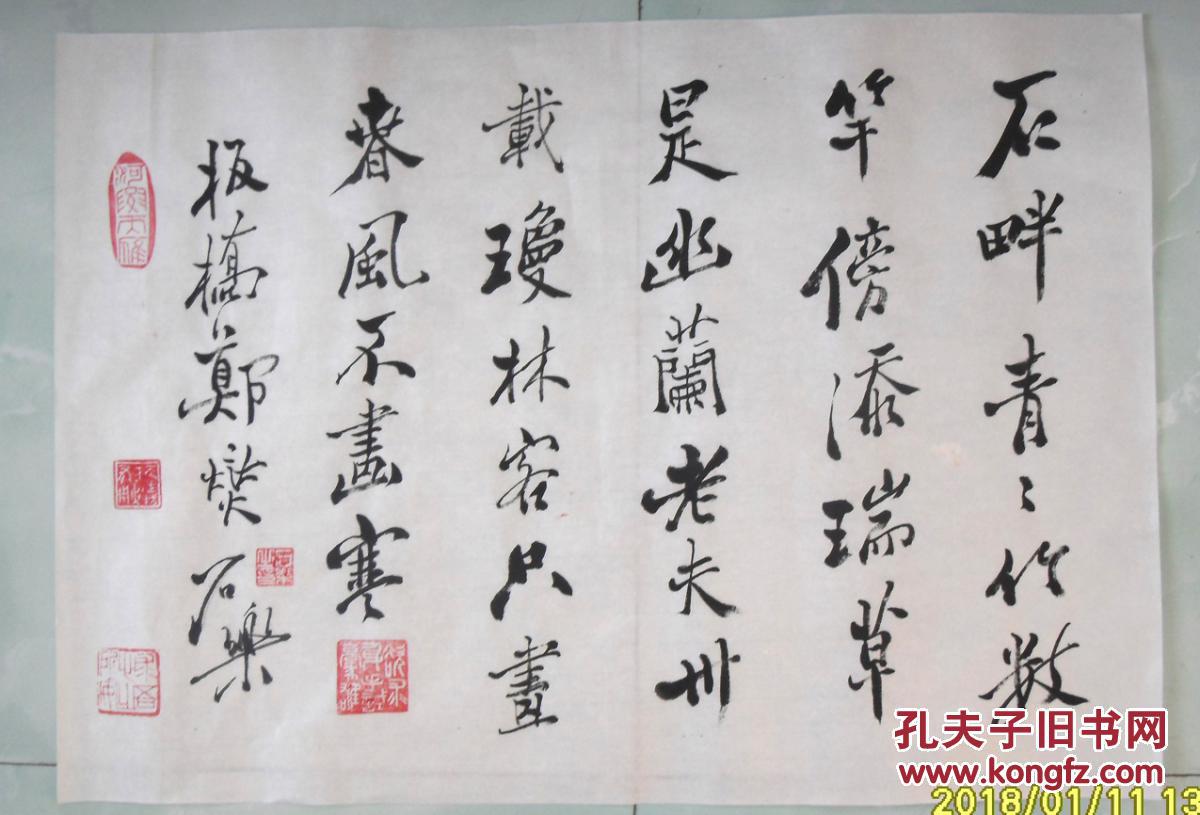 石畔青〻竹数
竿傍添瑞草
是幽蘭老夫卅
載瓊林客只畫
春風不畫寒
板橋鄭燮石樂
孔夫子旧书网
www.kongfz.com
2018/01/11 13